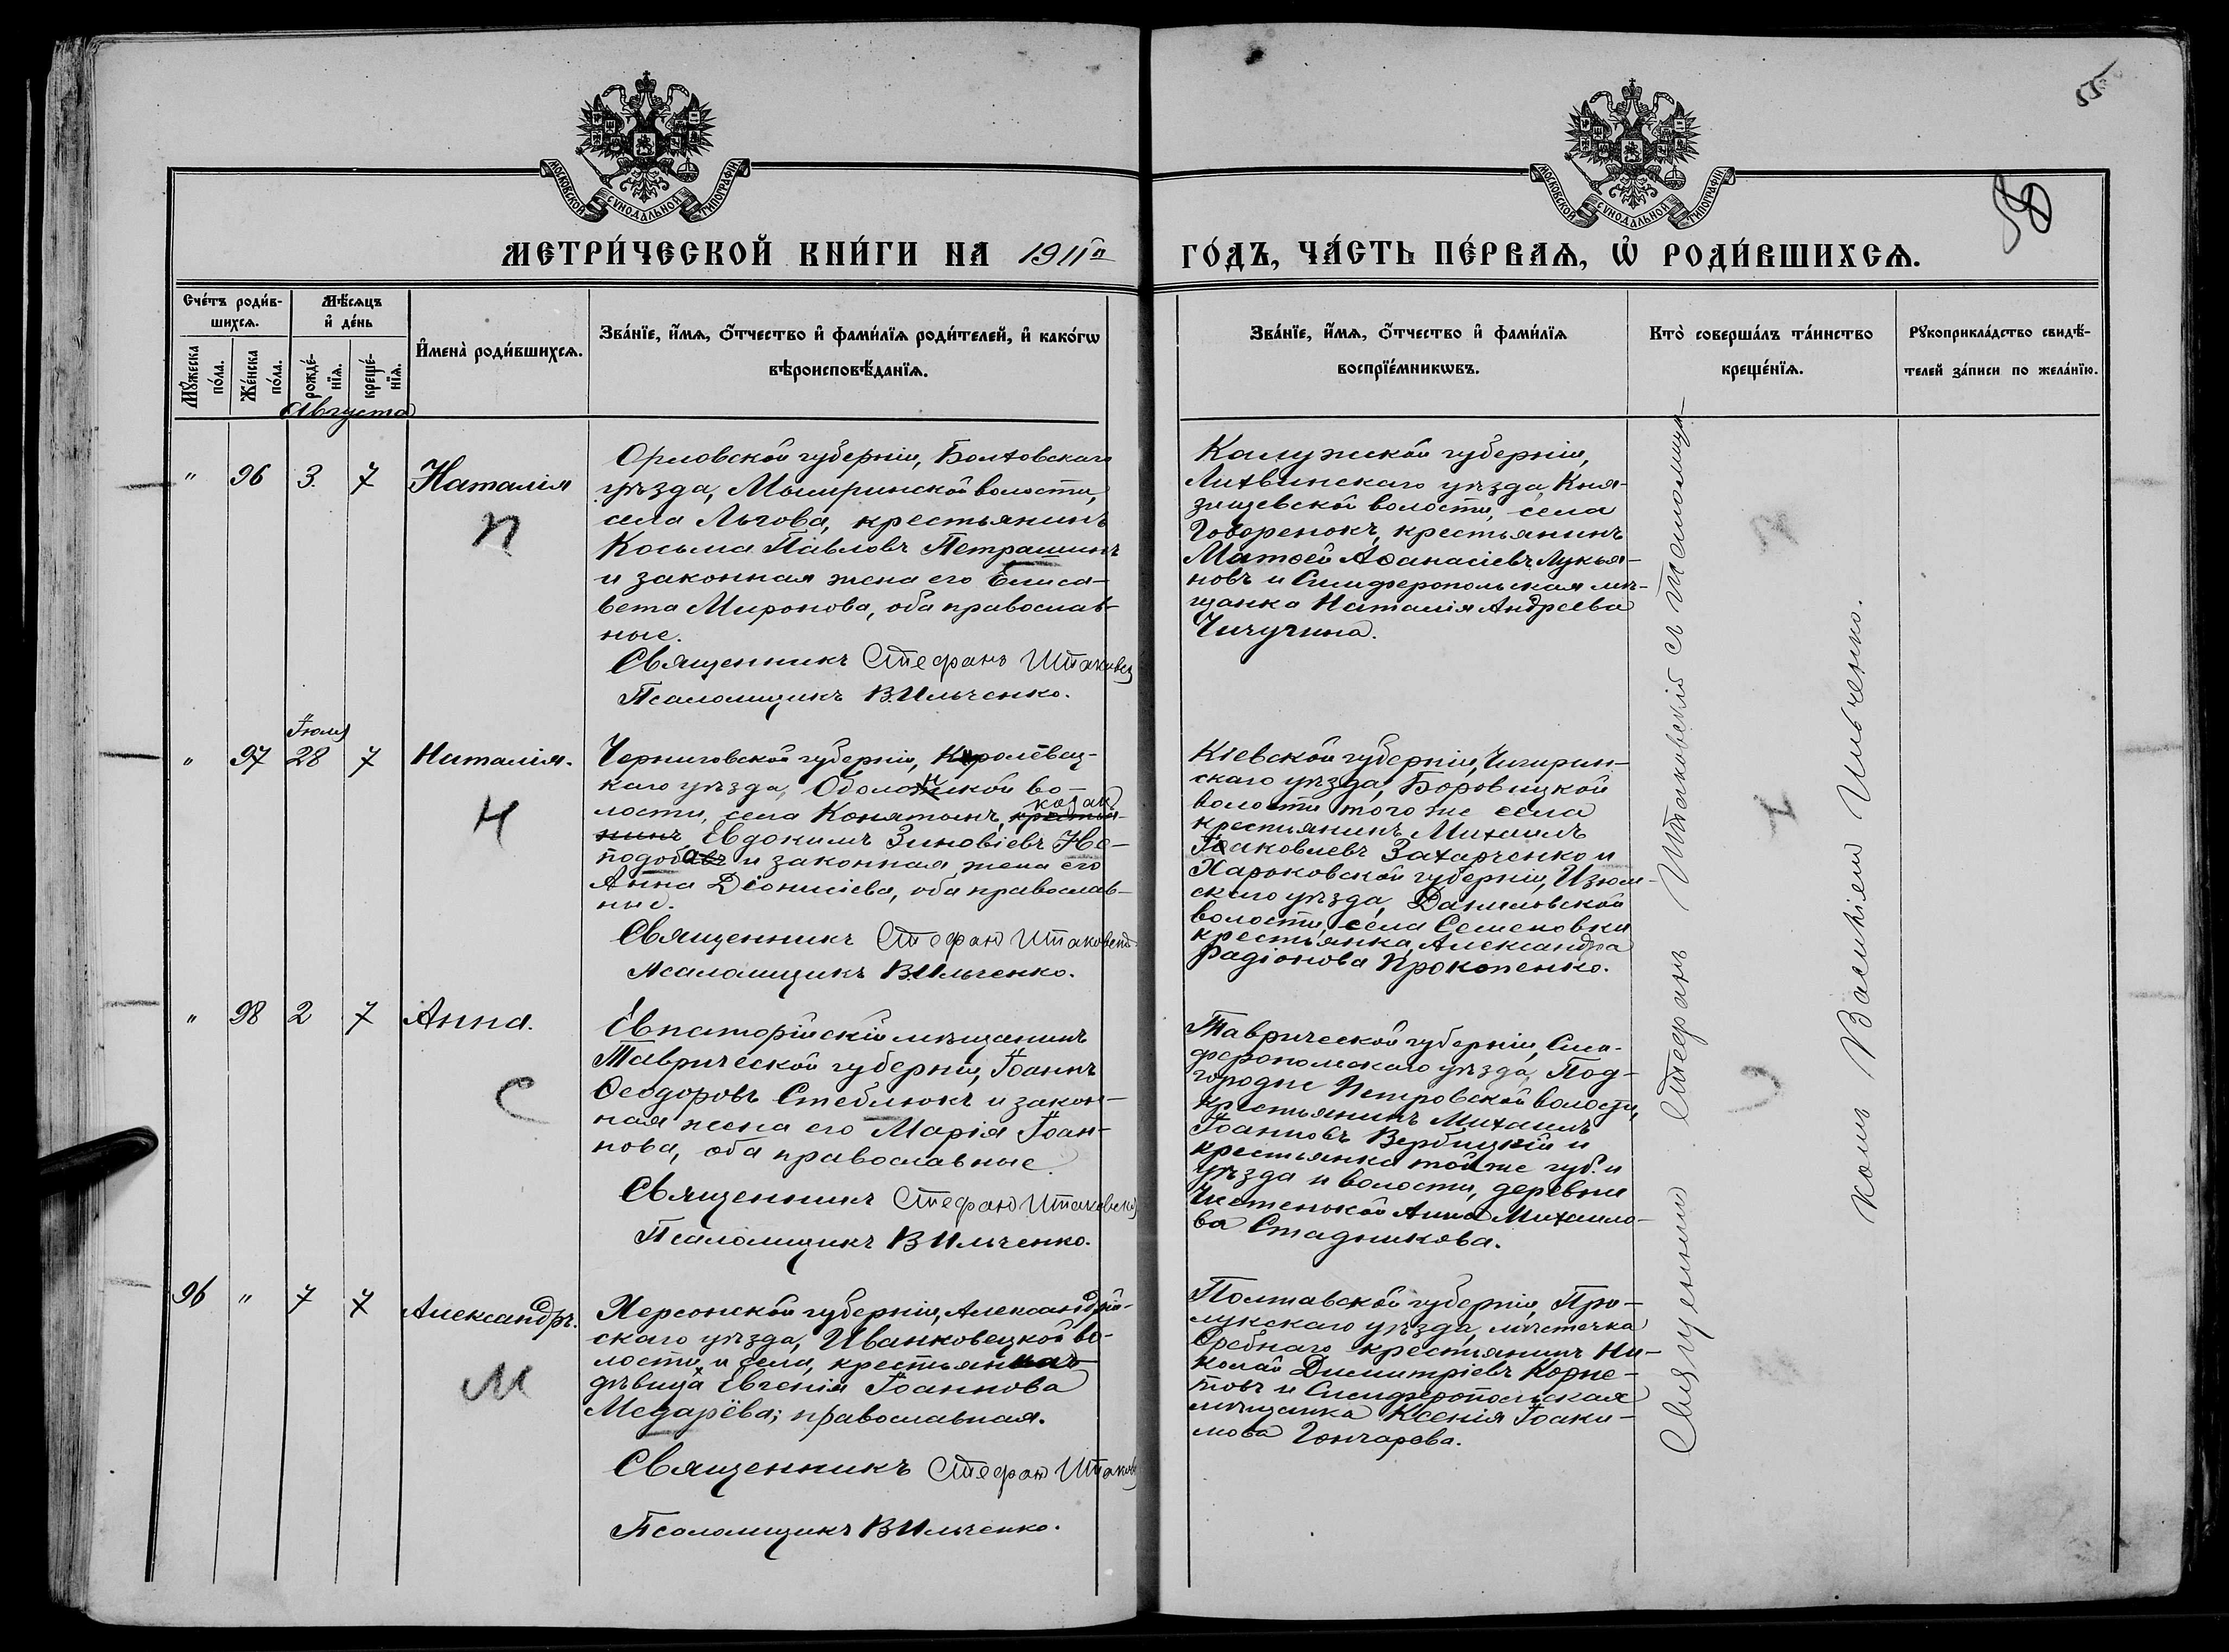 55
МОСКОВСКОЙ СѴНОДАЛЬНОЙ ТИПОГРАФІИ
МОСКОВСКОЙ СѴНОДАЛЬНОЙ ТИПОГРАФІИ
МЕТРИ́ЧЕСКОЙ КНИ́ГИ НА 1911й ГО́ДЪ, ЧА́СТЬ ПЕ́РВАѦ, Ѡ҆ РОДИ́ВШИХСѦ.
Сче́тъ роди́в-
шихсѧ.
Мѣ́сѧцъ
и҆ де́нь
Мꙋ́жеска
по́ла.
Же́нска
по́ла.
рожде́-
нїѧ.
креще́-
нїѧ.
И҆мена̀ роди́вшихсѧ.
Зва́нїе, и҆́мѧ, ѻ҆́тчество и҆ фами́лїѧ роди́телей, и҆ како́гѡ
вѣроисповѣ́данїѧ.
Зва́нїе, и҆́мѧ, ѻ҆́тчество и҆ фами́лїѧ
воспрїе́мникѡвъ.
Кто̀ соверша́лъ та́инство
креще́нїѧ.
Рꙋкоприкла́дство свидѣ́-
телей за́писи по жела́нїю.
Августа
" 96 3. 7 Наталія
П
Орловской губерніи, Болховскаго
уѣзда, волости,
села Льгова, крестьянинъ
Косьма Павловъ Петрашинъ
и законная жена его Елиса-
вета Миронова, оба православ-
ные.
Священникъ Стефанъ Штаковск
Псаломщикъ В.Ильченко.
Калужской губерніи,
Лихвинскаго уѣзда, Кня-
зищевской волости, села
Говоренокъ, крестьянинъ
Матѳей Аѳанасіевъ Лукья-
новъ и Симферопольская мѣ-
щанка Наталія Андреева
Чичугина.
Іюля
" 97 28 7 Наталія.
Н
Черниговской губерніи, Кролевец-
каго уѣзда, Оболонской во-
лости, села Конятынъ, крестья- козак
нинъ Евдокимъ Зиновіевъ Не-
подоба и законная жена его
Анна Діонисіева, оба православ-
ные.
Священникъ Стефан Штаковскій
Псаломщикъ В.Ильченко.
Кіевской губерніи, Чигирин-
скаго уѣзда, Боровицкой
волости того же села
крестьянинъ Михаилъ
Іаковлевъ Захарченко и
Харьковской губерніи, Изюм-
скаго уѣзда, Даниловской
волости, села Семеновки
крестьянка Александра
Радіонова Прокопенко.
" 98 2 7 Анна.
С
Евпаторійскій мѣщанинъ
Таврической губерніи, Іоаннъ
Ѳеодоровъ Стеблюкъ и закон-
ная жена его Марія Іоан-
нова, оба православные.
Священникъ Стефан Штаковскій
Псаломщикъ В Ильченко.
Таврической губерніи, Сим-
феропольскаго уѣзда, Под-
городне Петровской волости,
крестьянинъ Михаилъ
Іоанновъ Вербицкій и
крестьянка той же губ. и
уѣзда и волости, деревни
Чистенькой Анна Михаило-
ва Стадникова.
96 " 7 7 Александръ.
М
Херсонской губерніи, Александрій-
скаго уѣзда, Иванковецкой во-
лости и села, крестьянка
дѣвица Евгенія Іоаннова
Медарёва; православная.
Священникъ Стефан Штаков
Псаломщикъ В Ильченко.
Полтавской губерніи, При-
лукскаго уѣзда, мѣстечка
Сребнаго крестьянинъ Ни-
колай Димитріевъ Корне-
товъ и Симферопольская
мѣщанка Ксенія Іоаки-
мова Гончарова.
Священникъ Стефанъ Штаковскій съ псаломщи-
комъ Василіемъ Ильченко.